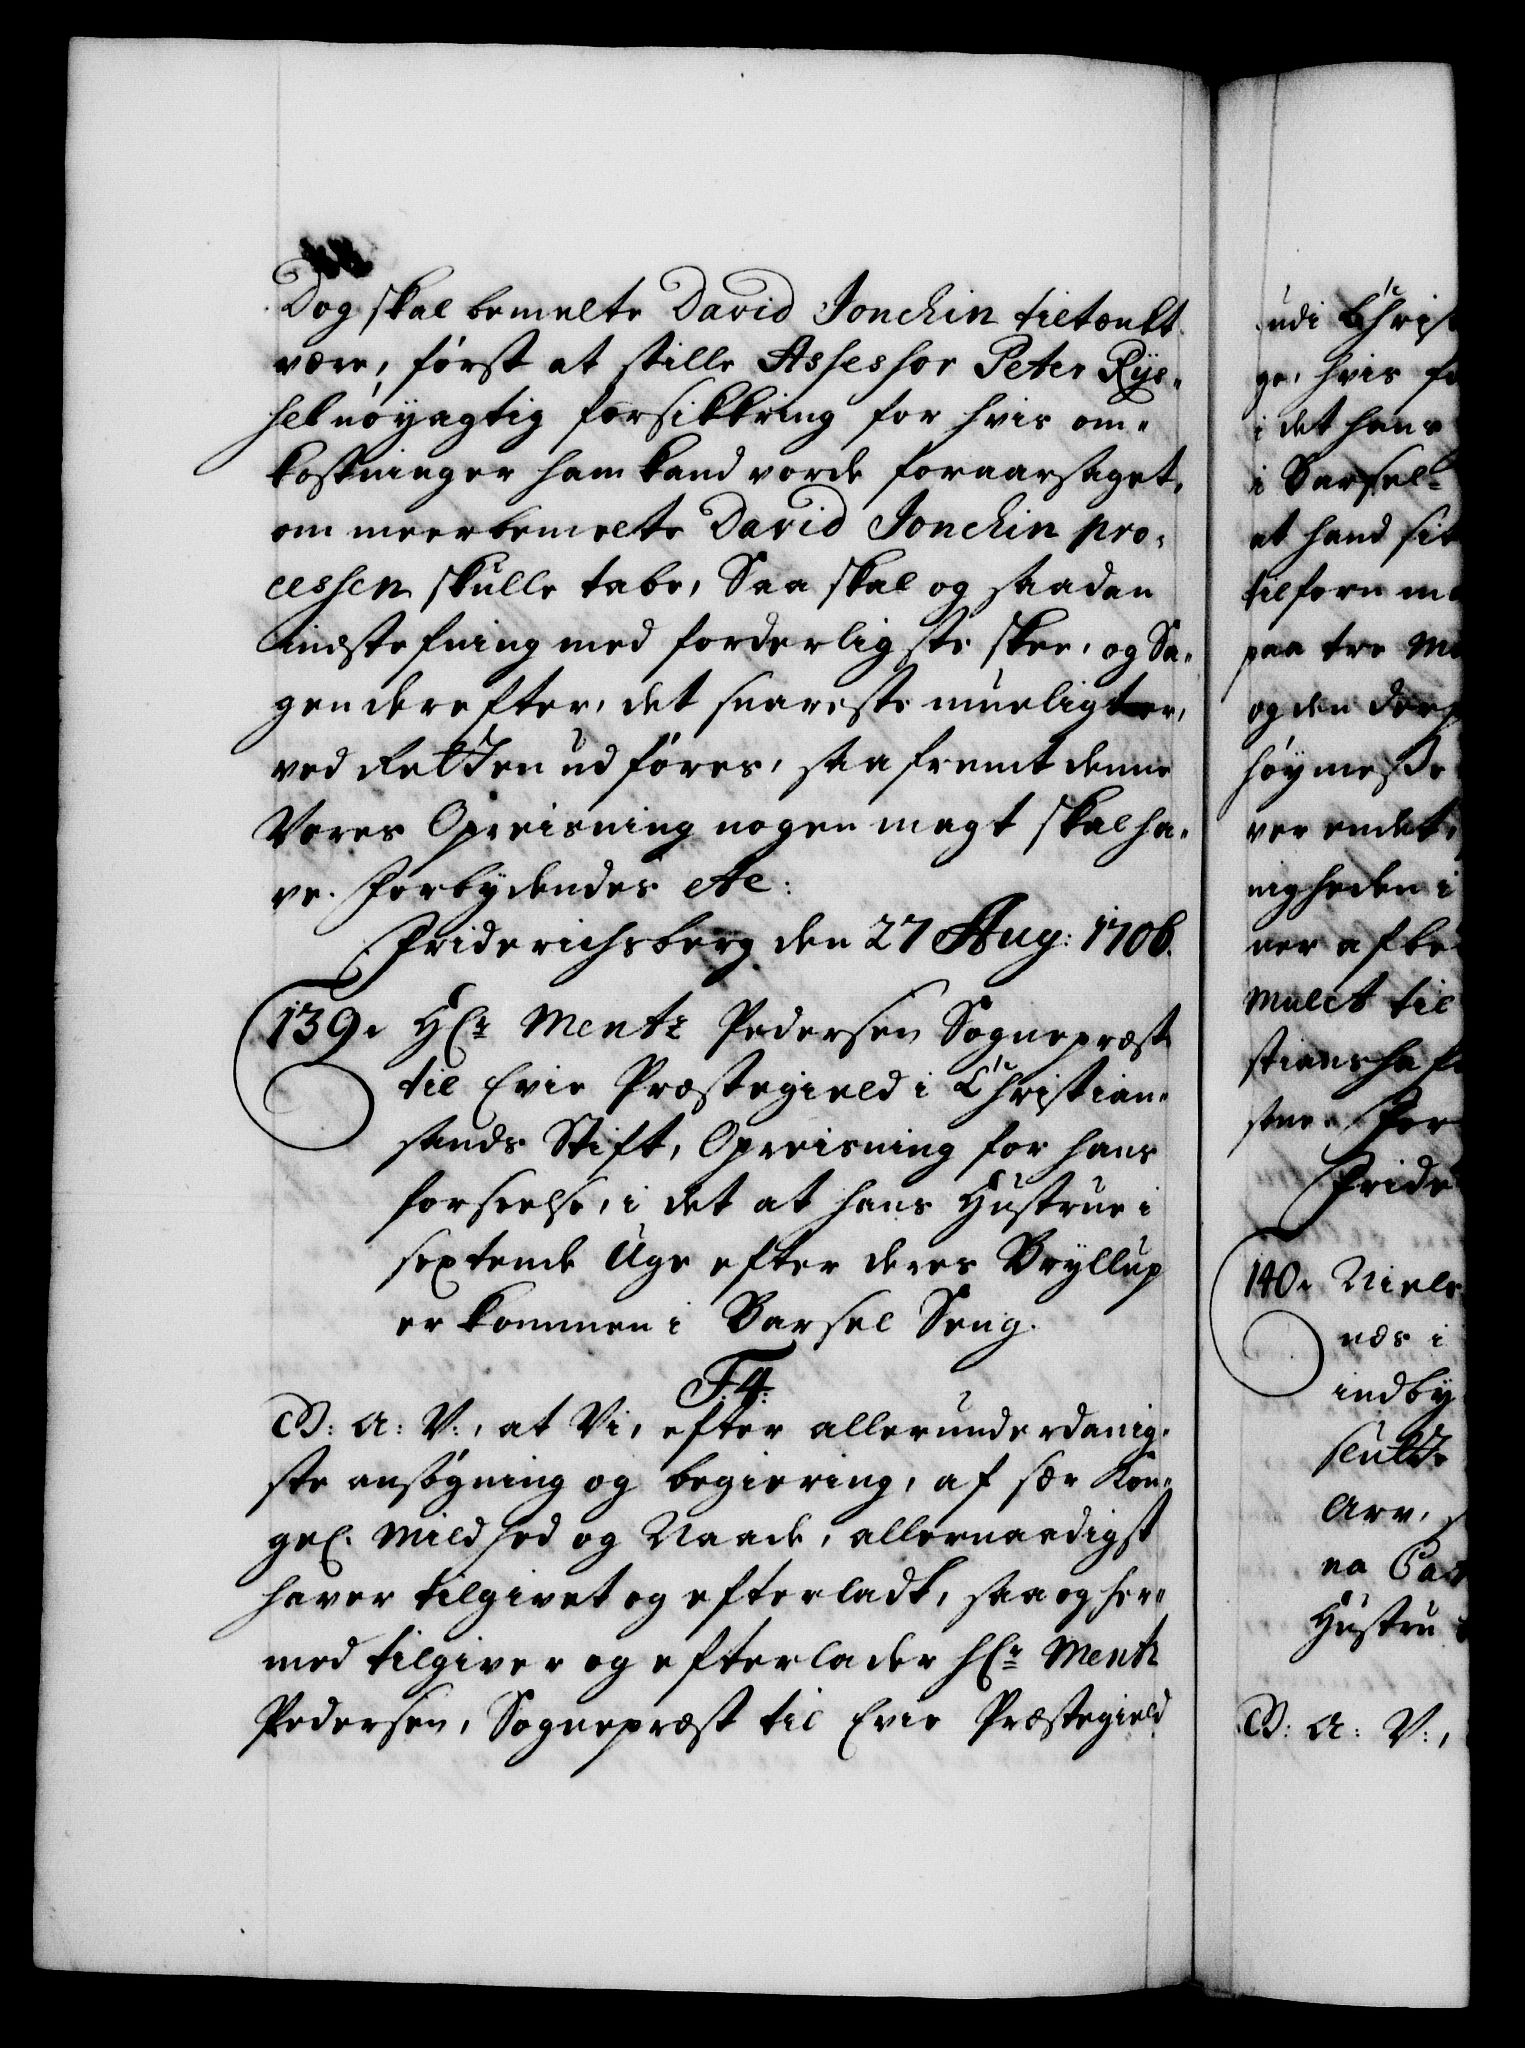 Dog skal bemelte David Jonchin tiltænkt
være, først at stille Assessor Peter Rÿs-
sel nöyagtig forsikkring for hvis om-
kostninger ham kand vorde foraarsaget,
om meerbemelte David Jonchin pro-
cessen skulle tabe, Saa skal og saadan
indstefning med forderligste skee, og Sa-
gen derefter, det snareste mueligt er,
ved Retten udføres, saa fremt denne
Vores Opreisning nogen magt skal ha-
ve. Forbydendes etc:
Friderichsberg den 27 Aug: 1706.
139. Hr Mentz Pedersen Sognepræst
til Evie Præstegield i Christian-
sands Stift, Opreisning for hans
forseelse, i det at hans Hustrue i
sextende Uge efter deres Bryllup
er kommen i Barsel Seng.
F. 4.
G: A: V:, at Vi, efter allerunderdanig-
ste ansøgning og begiering, af sær Kon-
gel. Mildhed og Naade, allernaadigst
haver tilgivet og efterladt, saa og her-
med tilgiver og efterlader Hr Mentz
Pedersen, Sognepræst til Evie Præstegield
udi Christ
ge, hvis
i det hans
i Barsel-
at hand
tilforn
paa tre
og den
høymesse
ver endet,
nigheden i
ner
Mulct til
stiansha
stue.
Frid
140. Niels
næs i
indby
slutte
Arv,
na
Hustru
G: A: V:,